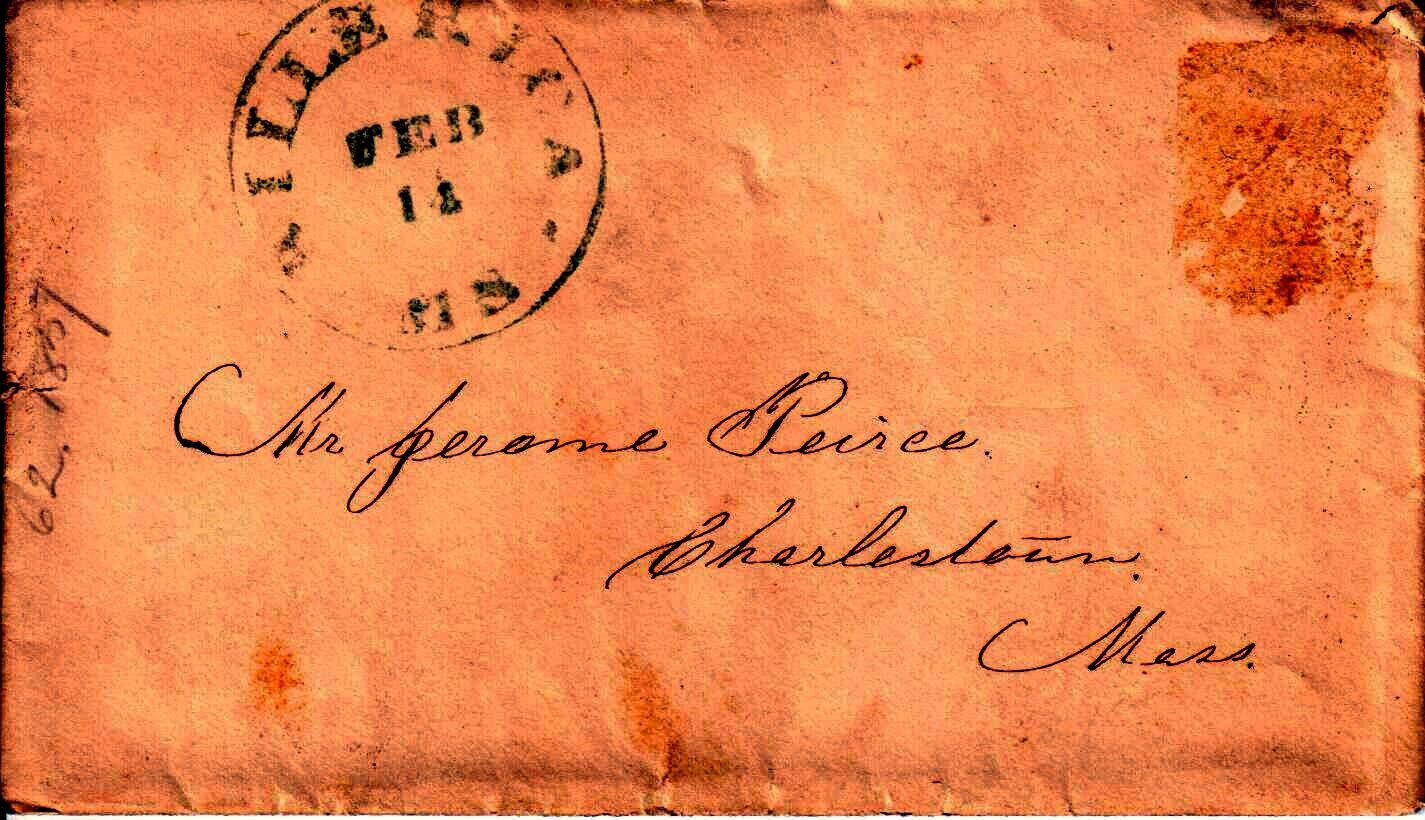 BILLERICA
FEB
14
MS
62. 1857
Mr Jerome Peirce.
Charlestown.
Mass.